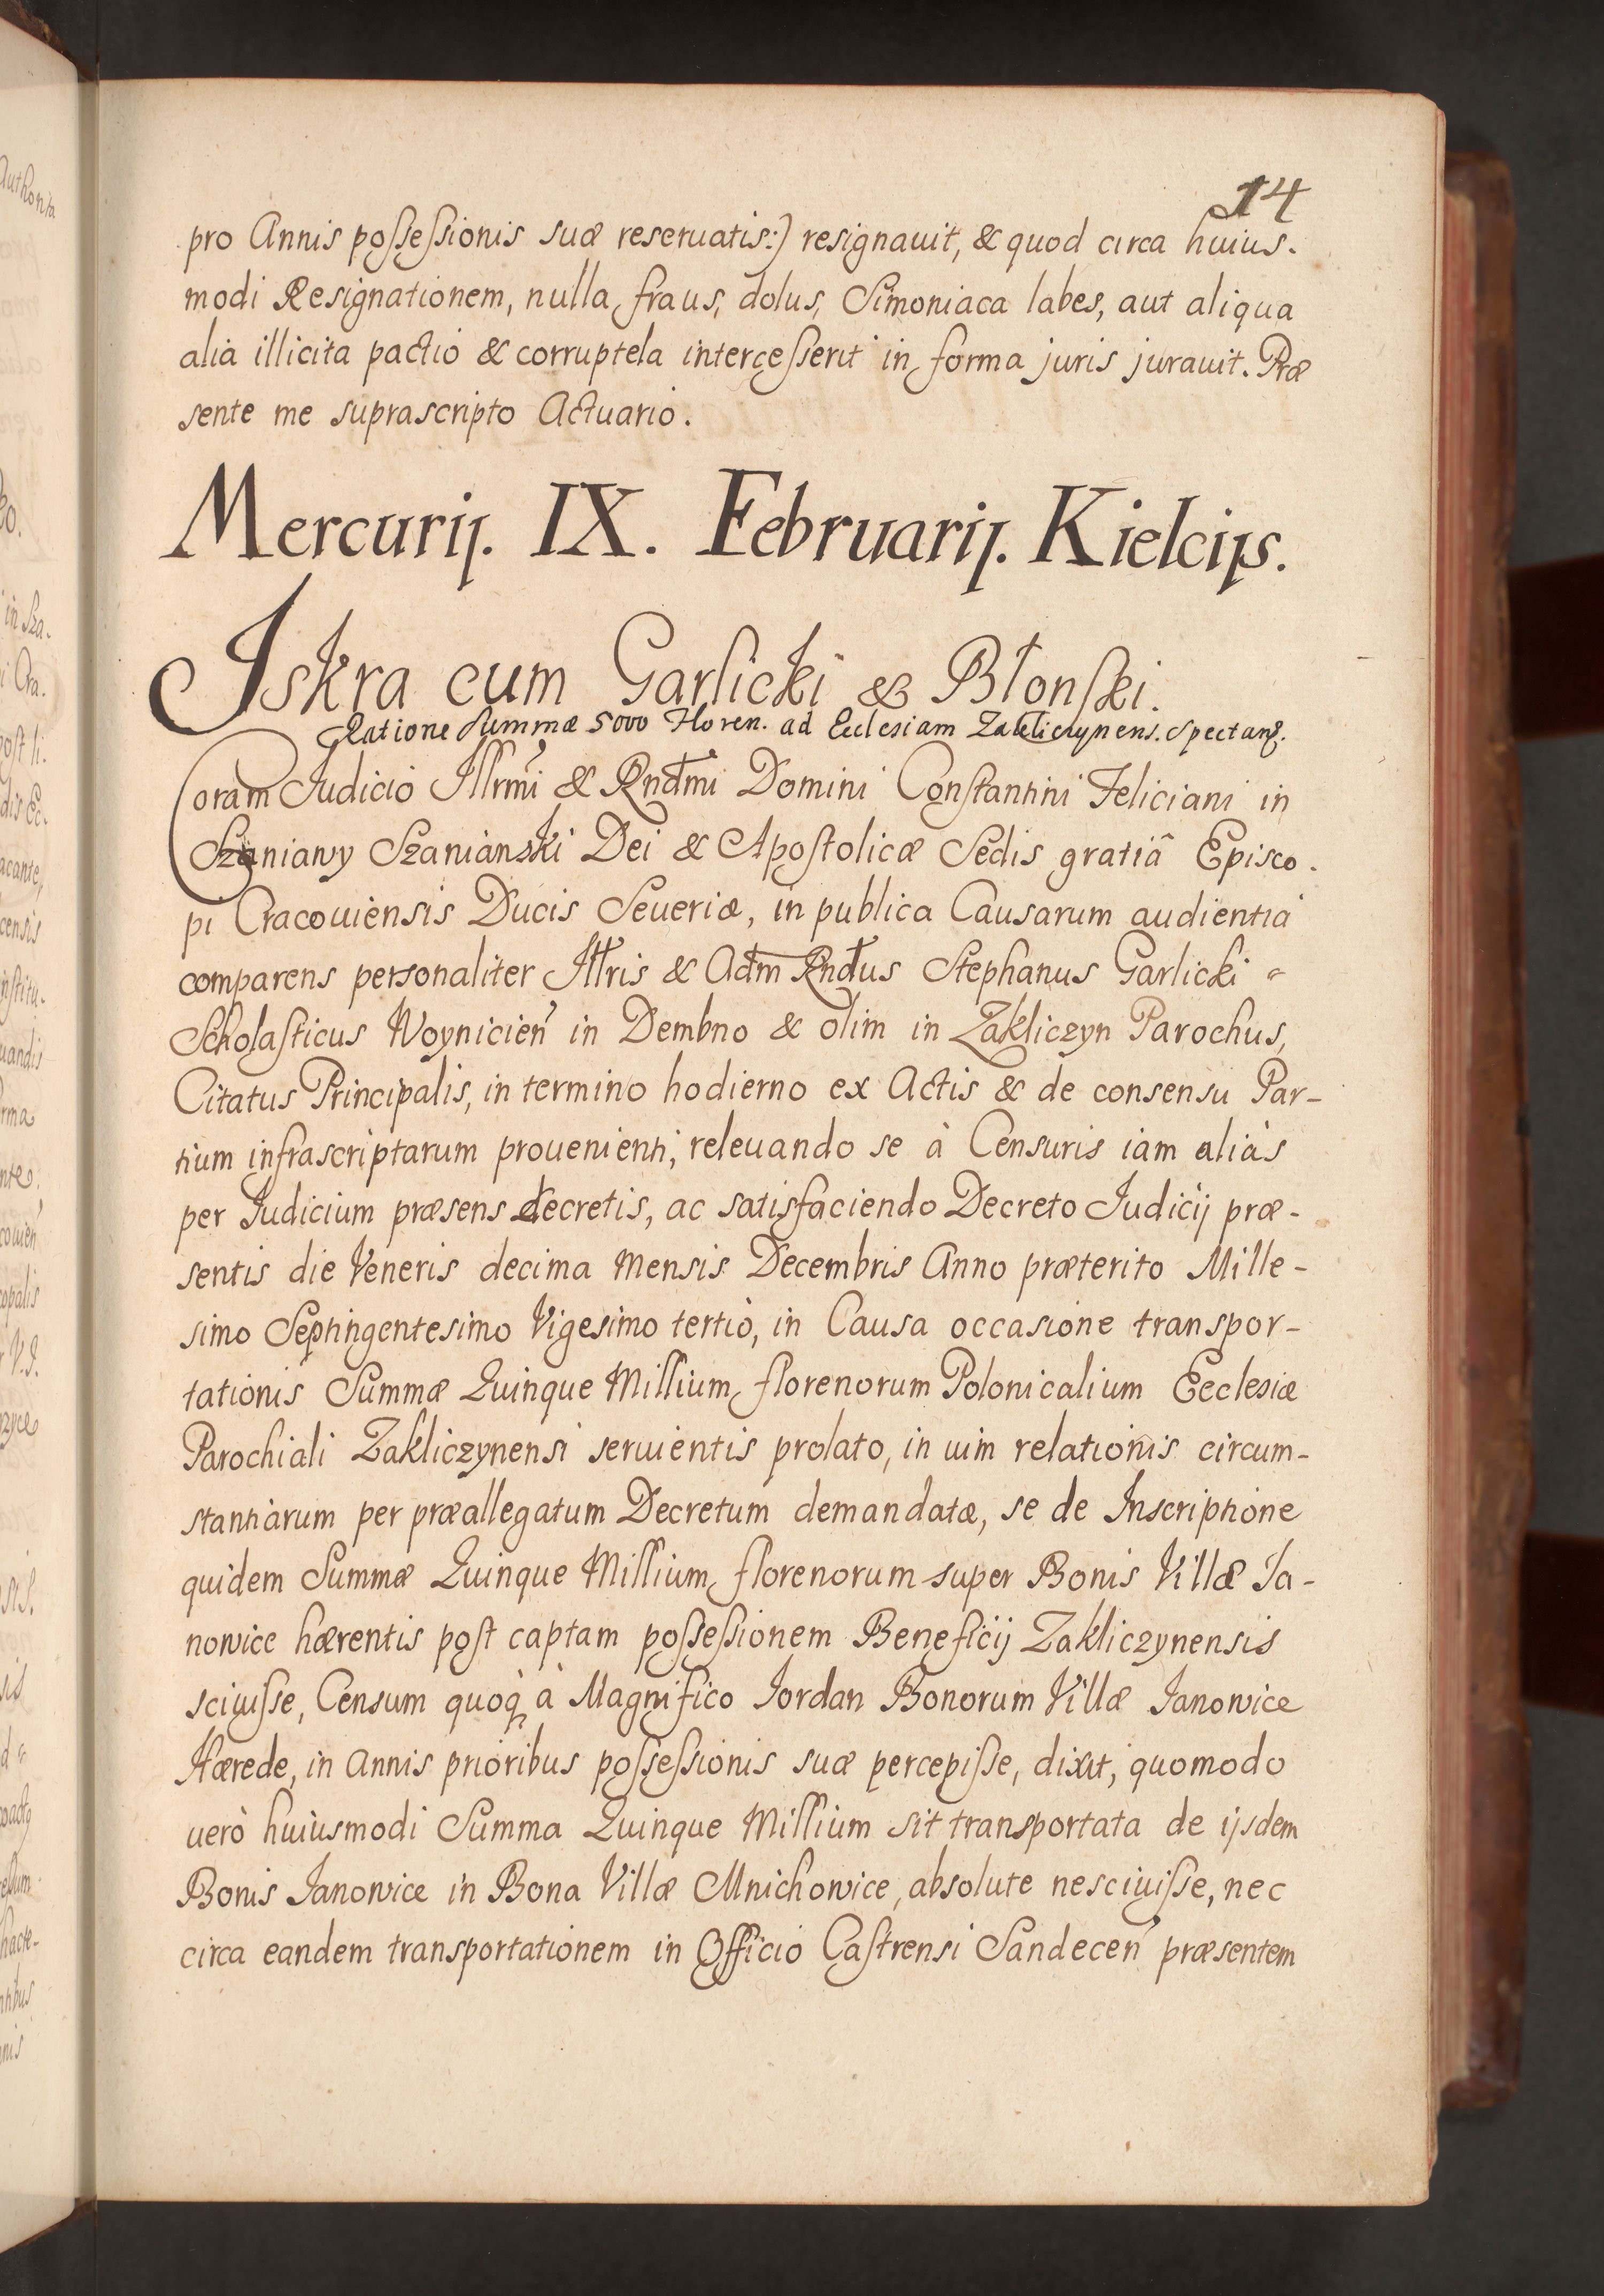 14
pro Annis possessionis suæ reseruatis:) resignauit, & quod circa huius-
modi Resignationem, nulla fraus, dolus, Simoniaca labes, aut aliqua
alia illicita pactio & corruptela intercesserit in forma juris jurauit. Præ
sente me suprascripto Actuario.
Mercurij. IX. Februarij. Kielcijs.
Iskra cum Garlicki & Błonski.
Ratione summæ 5000 Floren. ad Ecclesiam Zakliczynens. spectan.
Coram Judicio Illrmi & Rndmi Domini Constantini Feliciani in
Szaniawy Szaniawski Dei & Apostolicæ Sedis gratiâ Episco-
pi Cracouiensis Ducis Seueriæ, in publica Causarum audientia
comparens personaliter Illris & Adm Rndus Stephanus Garlicki
Scholasticus Woynicien in Dembno & olim in Zakliczyn Parochus,
Citatus Principalis, in termino hodierno ex Actis & de consensu Par-
tium infrascriptarum prouenienti, releuando se à Censuris iam aliàs
per Judicium præsens decretis, ac satisfaciendo Decreto Judicij præ-
sentis die Veneris decima Mensis Decembris Anno præterito Mille-
simo Septingentesimo Vigesimo tertio, in Causa occasione transpor-
tationis Summæ Quinque Millium florenorum Polonicalium Ecclesiæ
Parochiali Zakliczynensi seruientis prolato, in uim relationis circum-
stantiarum per præallegatum Decretum demandatæ, se de Inscriptione
quidem Summæ Quinque Millium florenorum super Bonis Villæ Ja-
nowice hærentis post captam possessionem Beneficij Zakliczynensis
sciuisse, Censum quoq à Magnifico Jordan Bonorum Villæ Janowice
Hærede, in Annis prioribus possessionis suæ percepisse, dixit, quomodo
uerò huiusmodi Summa Quinque Millium sit transportata de ijsdem
Bonis Janowice in Bona Villæ Mnichowice, absolute nesciuisse, nec
circa eandem transportationem in Officio Castrensi Sandecen præsentem